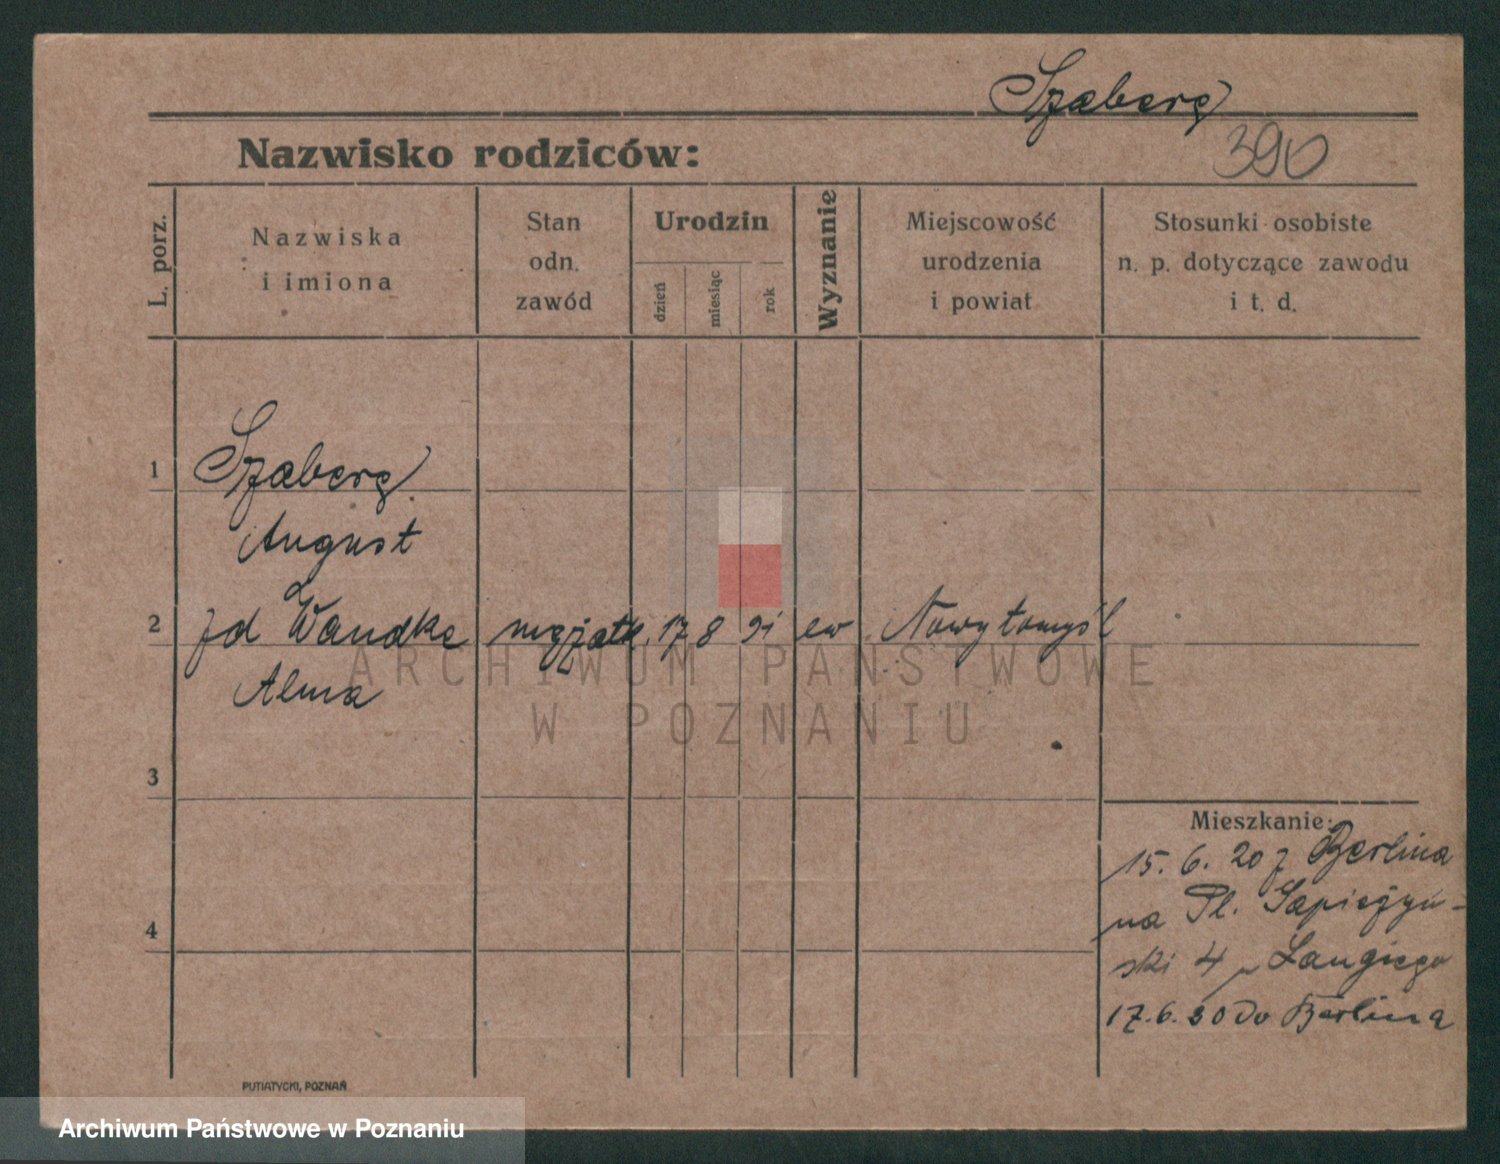 Szaberg
390
Nazwisko rodziców:
L. porz.
Nazwiska
i imiona
Stan
odn.
zawód
Urodzin
dzień
miesiąc
rok
Wyznanie
Miejscowość
urodzenia
i powiat
Stosunki osobiste
n. p. dotyczące zawodu
i t. d.
1
Szaberg
August
2
zd Wandke mężatk. 17 8 91 ew Nowytomyśl
Alma
ARCHIWUM PAŃSTWOWE
W POZNANIU
3
Mieszkanie:
15. 6. 20 z Berlina
na Pl. Sapieżyń-
ski 4 u Langiego
17. 6. 30 do Berlina
4
PUTIATYCKI, POZNAŃ
Archiwum Państwowe w Poznaniu